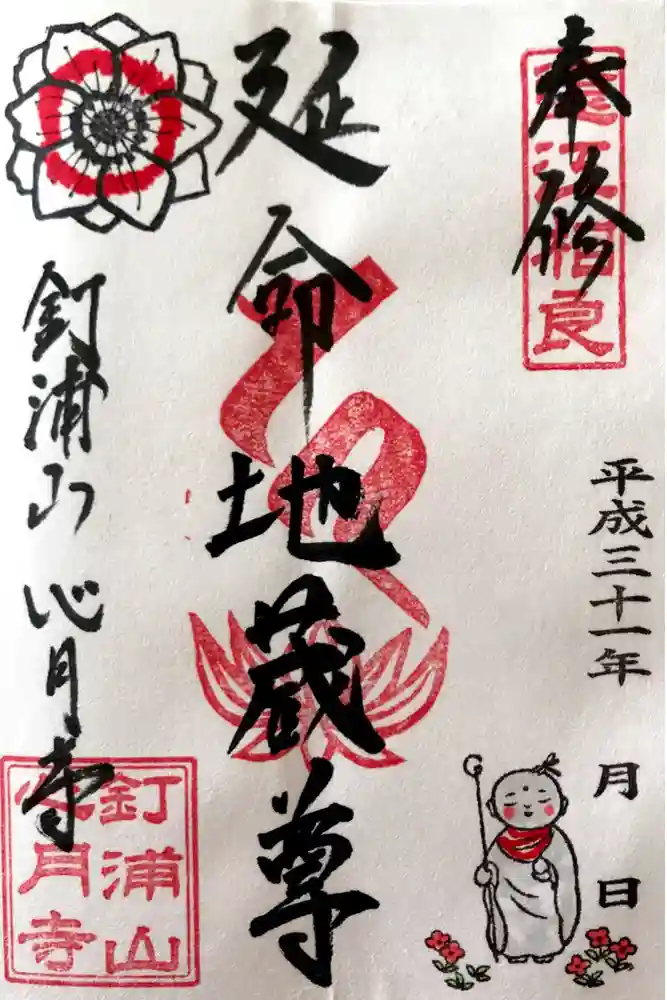 奉修
遠江相良
平成三十一年 月 日
延命地蔵尊
釘浦山 心月寺
釘浦山
心月寺